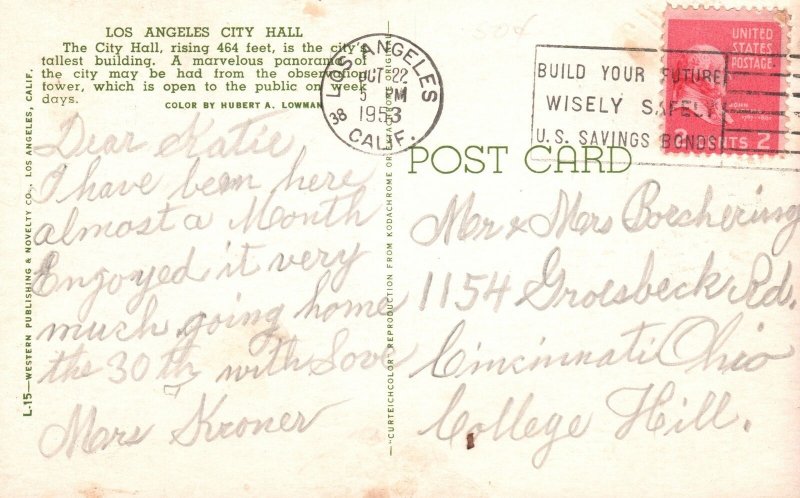 LOS ANGELES CITY HALL
The City Hall, rising 464 feet, is the city's
tallest building. A marvelous panorama of
the city may be had from the observation
tower, which is open to the public on week
days.
COLOR BY HUBERT A. LOWMAN
Dear Katie
I have been here
almost a Month
Engoyed it very
much going home
the 30th with Love
Mrs Kroner
L-15—WESTERN PUBLISHING & NOVELTY CO., LOS ANGELES, CALIF.
"CURTEICHCOLOR" REPRODUCTION FROM KODACHROME OR ORIGINAL
LOS ANGELES
OCT 22
5 PM
1953
38 CALIF.
BUILD YOUR FUTURE
WISELY SAFELY
U.S. SAVINGS BONDS
UNITED
STATES
POSTAGE
JOHN
2 CENTS 2
50¢
POST CARD
Mr & Mrs Borchering
1154 Groesbeck Rd.
Cincinnati Ohio
College Hill.